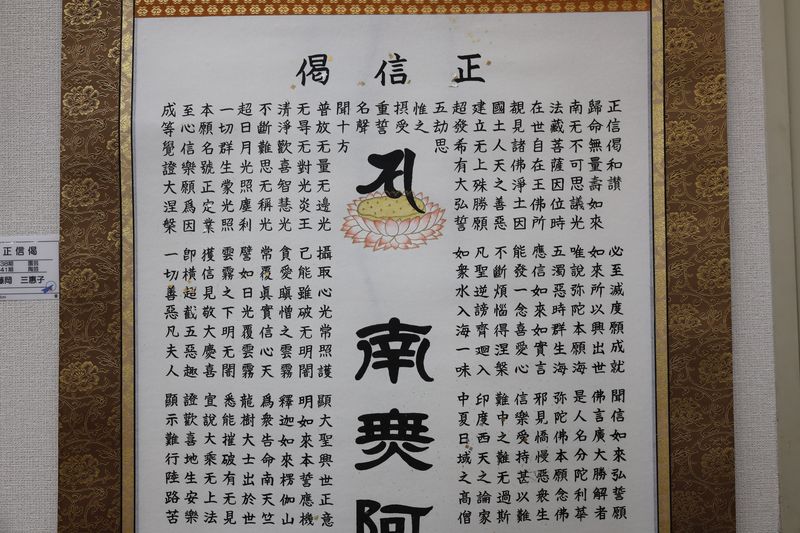 正信偈
正信偈和讃
歸命無量壽如來
南无不可思議光
法藏菩薩因位時
在世自在王佛所
覩見諸佛淨土因
國土人天之善惡
建立无上殊勝願
超發希有大弘誓
五劫思
惟之
摂受
重誓
名聲
聞十方
普放无量无邊光
无㝵无對光炎王
清淨歡喜智慧光
不斷難思无稱光
超日月光照塵刹
一切群生蒙光照
本願名號正定業
至心信樂願爲因
成等覺證大涅槃
必至滅度願成就
如來所以興出世
唯説弥陀本願海
五濁惡時群生海
應信如來如實言
能發一念喜愛心
不斷煩惱得涅槃
凡聖逆謗齊迴入
如衆水入海一味
攝取心光常照護
已能雖破无明闇
貪愛瞋憎之雲霧
常覆眞實信心天
譬如日光覆雲霧
雲霧之下明无闇
獲信見敬大慶喜
即横超截五惡趣
一切善惡凡夫人
聞信如來弘誓願
佛言廣大勝解者
是人名分陀利華
弥陀佛本願念佛
邪見憍慢惡衆生
信樂受持甚以難
難中之難无過斯
印度西天之論家
中夏日域之高僧
顯大聖興世正意
明如來本誓應機
釋迦如來楞伽山
爲衆告命南天竺
龍樹大士出於世
悉能摧破有无見
宣説大乘无上法
證歡喜地生安樂
顯示難行陸路苦
南無阿
正信偈
38期 園芸
41期 陶芸
藤岡 三惠子